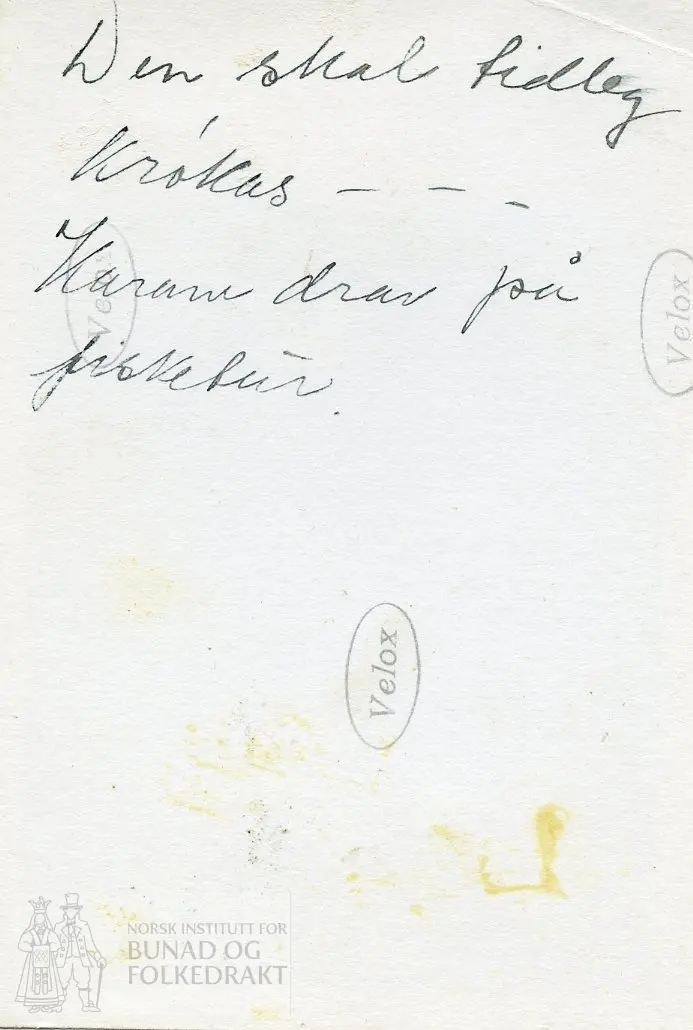 Den skal tidleg
krókas - - -
Karane drar på
fisketur.
Velox
Velox
Velox
NORSK INSTITUTT FOR
BUNAD OG
FOLKEDRAKT